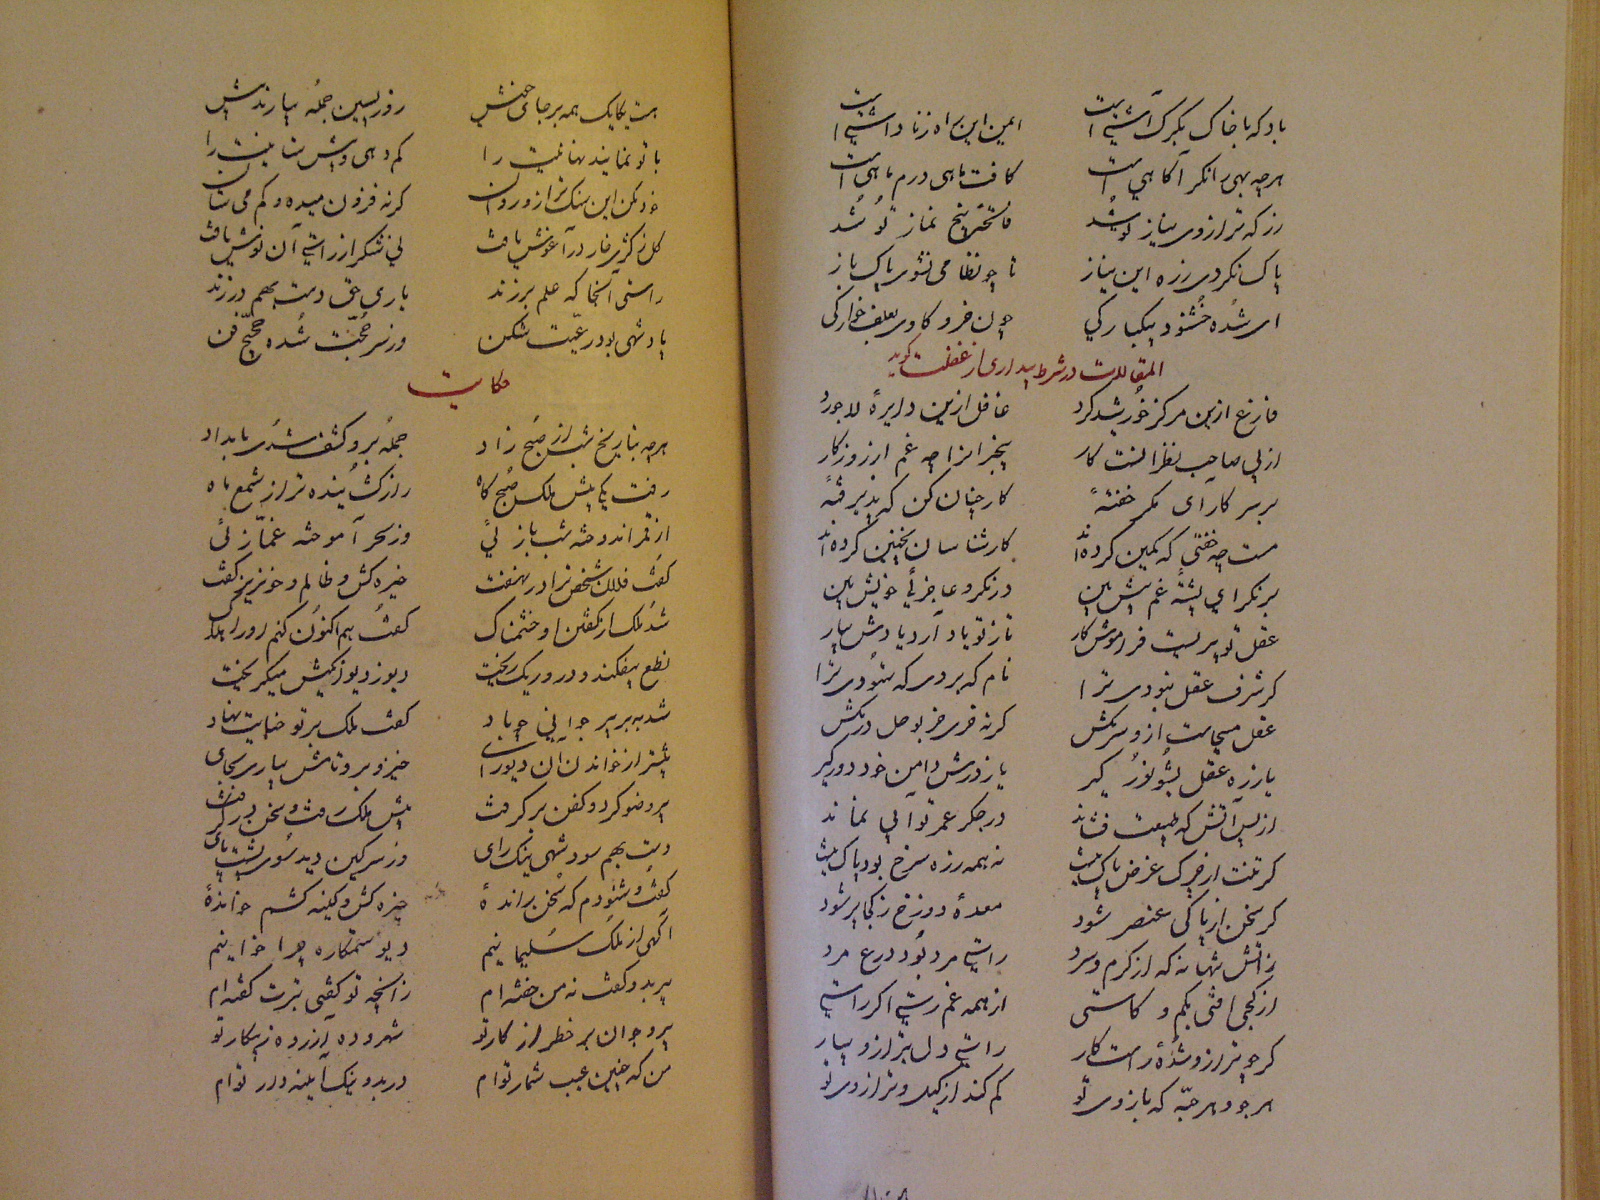 باد که با خاک بگرگ آشتیست ایمن ازین راه ز ناداشتیست
هرچه بهی را نگر آگاهی است کافت ماهی درم ماهی است
زر که ترازوی نیاز تو شد فاتحه پنج نماز تو شد
پاک نکردی ز ره این نیاز تا چو نظامی نشوی پاک باز
ای شده خشنود بیکبارگی چون خر و گاوی بعلف خوارگی
المقالات در شرط بیداری از غفلت گوید
فارغ ازین مرکز خورشید گرد غافل ازین دایرهٔ لاجورد
از پی صاحب نظرانست کار بیخبرانرا چه غم از روزگار
بر سر کار آی مگر خفتهٔ کار چنان کن که پذیرفتهٔ
مست چه خفتی که کمین کرده‌اند کارشناسان نچنین کرده‌اند
برنگر ای پشته غم پیش بین درنگر و عاجزئی خویش بین
عقل تو پیریست فراموش کار تا ز تو یاد آرد یادش بیار
گر شرف عقل نبودی ترا نام که بردی که ستودی ترا
عقل مسیحاست ازو سر مکش گرنه خری خر بوحل در مکش
یا ز ره عقل بشو نور گیر یا ز درش دامن خود دور گیر
از پس آتش که طبیعت فشاند در جگر عمر تو آبی نماند
گر تنت از چرک غرض پاک نیست نه همه سرخ بود پاک نیست
گر سخن از پاکی عنصر شود معدهٔ دوزخ ز کجا پر شود
زآتش تنها نه که از گرم و سرد راستی مرد بود درع مرد
از کجی افتی بکم و کاستی از همه غم رستی اگر راستی
گر چو ترازو شدهٔ راست کار راستی دل بترازو بیار
هر جو و هر حبّه که بازوی تو کم کند از کیل و ترازوی تو
هست یکایک همه بر جای خویش روز پسین جمله بیارند پیش
با تو نمایند نهانیت را کم دهی و بیش ستانیت را
خود مکن این سنگ ترازو روان گرنه فزون میده و کم می ستان
گل ز کژی خار در آغوش یافت نی شکر از راستی آن نوش یافت
راستی آنجا که علم برزند یاری حق دست بهم درزند
پادشهی بود رعیّت شکن وز سر حجّت شده حجّاج فن
حکایت
هرچه بتاریخ شب از صبح زاد جمله برو کشف شدی بامداد
رفت یکی پیش ملک صبح گاه راز گشاینده تر از شمع ماه
از قمر اندوخته شب بازئی وز سحر آموخته غمّازئی
گفت فلان شخص ترا در نهفت خیره کش و ظالم و خونریز گفت
شد ملک از گفتن او خشمناک گفت هم اکنون کنم او را هلاک
نطع بیفکند و درو ریک ریخت دیو ز دیوانگیش میگریخت
شد ببر پیر جوانی چو باد گفت ملک بر تو خیانت نهاد
پیشتر از خواندن آن دیو رای خیز و برو تاش بیاری بجای
پیر وضو کرد و کفن برگرفت پیش ملک رفت و سخن درگرفت
دست بهم سود شهی نیک رای وز سر کین دید سوی پشت پای
گفت شنودم که سخن راندهٔ خیره کش و کینه کشم خواندهٔ
آگهی از ملک سلیمانیم دیو ستمکاره چرا خوانیم
پیر بدو گفت نه من خفته‌ام زانچه تو گفتی بترت گفته‌ام
پیر و جوان بر خطر از کار تو شهر و ده آزرده ز پیکار تو
من که چنین عیب شمار توام در بد و نیک آینه دار توام